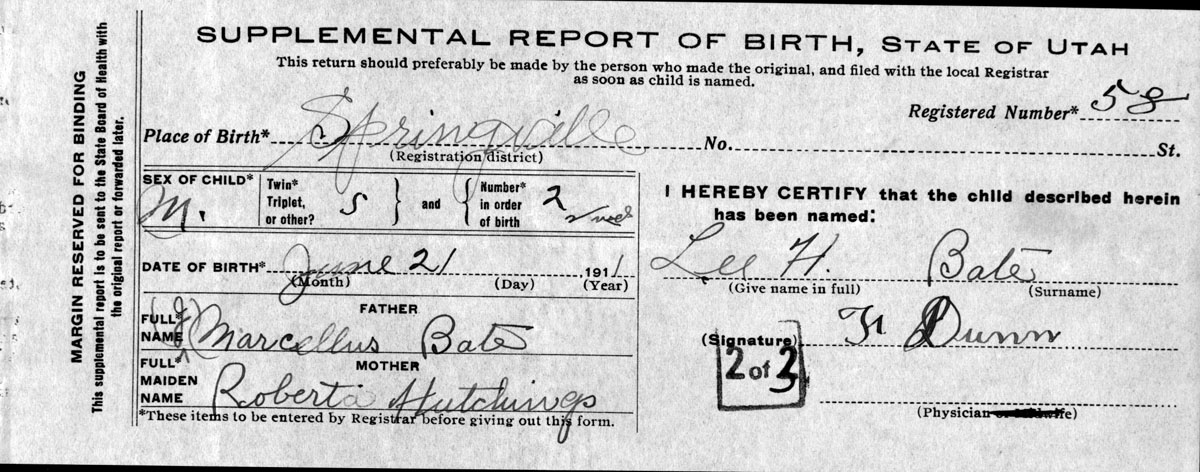 SUPPLEMENTAL REPORT OF BIRTH, STATE OF UTAH
This return should preferably be made by the person who made the original, and filed with the local Registrar
as soon as child is named.
Registered Number* 58
Place of Birth* Springville No. St.
(Registration district)
SEX OF CHILD* M.
Twin* Triplet, or other? S } and { Number* in order of birth 2
DATE OF BIRTH* June 21 1911
(Month) (Day) (Year)
FATHER
FULL* NAME (J) Marcellus Bate
MOTHER
FULL* MAIDEN NAME Roberta Hutchings
*These items to be entered by Registrar before giving out this form.
I HEREBY CERTIFY that the child described herein
has been named:
Lee H. Bate
(Give name in full) (Surname)
(Signature) Dunn
2 of 3
(Physician or Midwife)
MARGIN RESERVED FOR BINDING
This supplemental report is to be sent to the State Board of Health with
the original report or forwarded later.